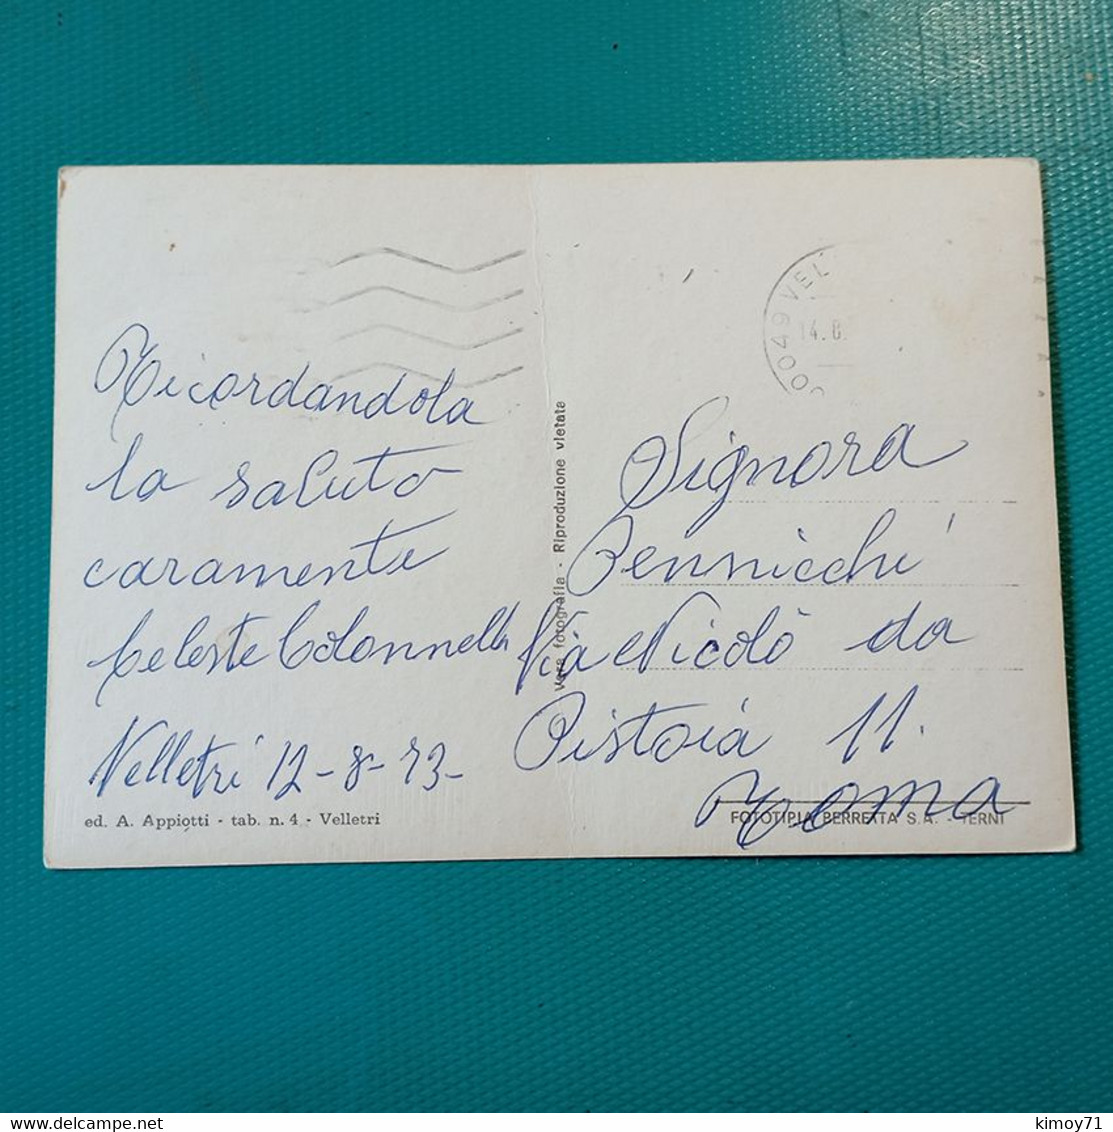 Ricordandola
la saluto
caramente
Celeste Colonnella
Velletri 12-8-73-
ed. A. Appiotti - tab. n. 4 - Velletri
Vera fotografia - Riproduzione vietata
00049 VEL
14.8.
Signora
Pennicchi
Via Nicolò da
Pistoia 11.
Roma
FOTOTIPIA BERRETTA S.A. - TERNI
kimoy71